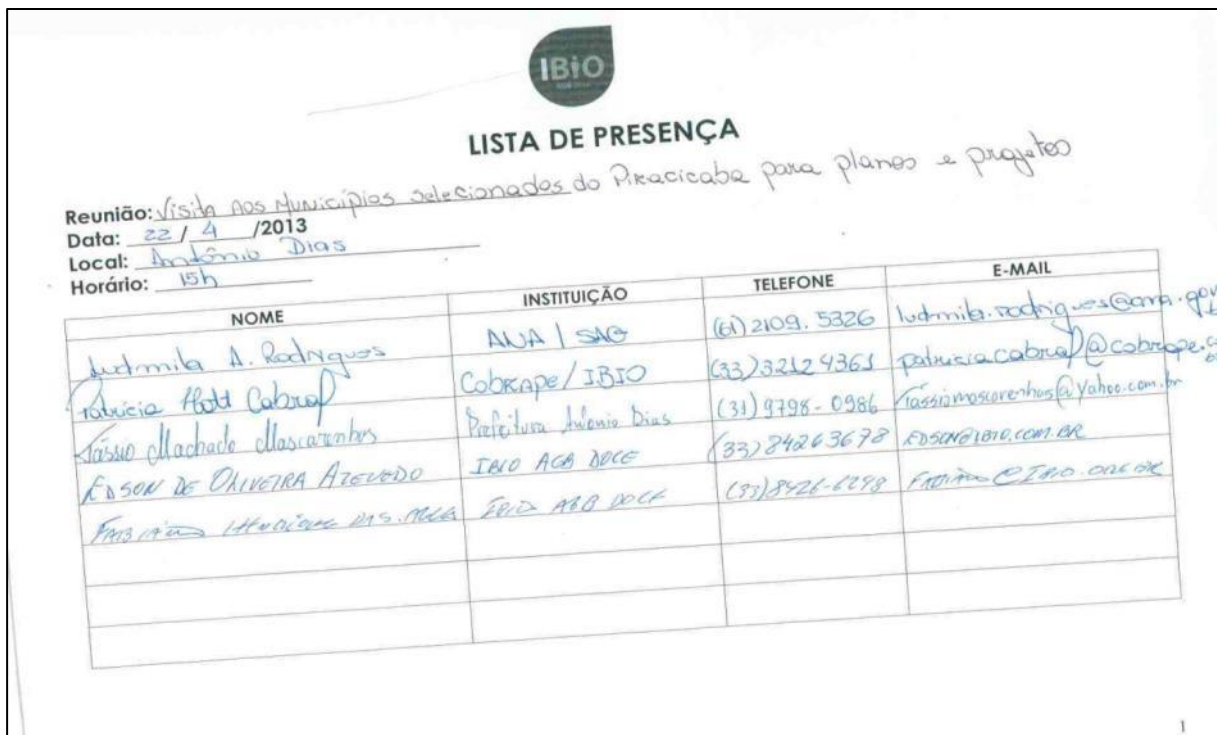 IBiO
LISTA DE PRESENÇA
Reunião: Visita Aos Municípios selecionados do Piracicaba para planos e projetos
Data: 22 / 4 /2013
Local: Antônio Dias
Horário: 15h
NOME INSTITUIÇÃO TELEFONE E-MAIL
Ludmila A. Rodrigues ANA / SAG (61) 2109.5326 ludmila.rodrigues@ana.gov
Patrícia Hott Cabral Cobrape/IBIO (33)3212 4361 patriciacabral@cobrape.co
Tássio Machado Mascarenhas Prefeitura Antonio Dias (31)9798-0986 Tassiomascarenhas@yahoo.com.br
EDSON DE OLIVEIRA AZEVEDO IBIO AGB DOCE (33)84263678 EDSON@IBIO.COM.BR
IBIO AGB DOCE (33)8426-6298
1